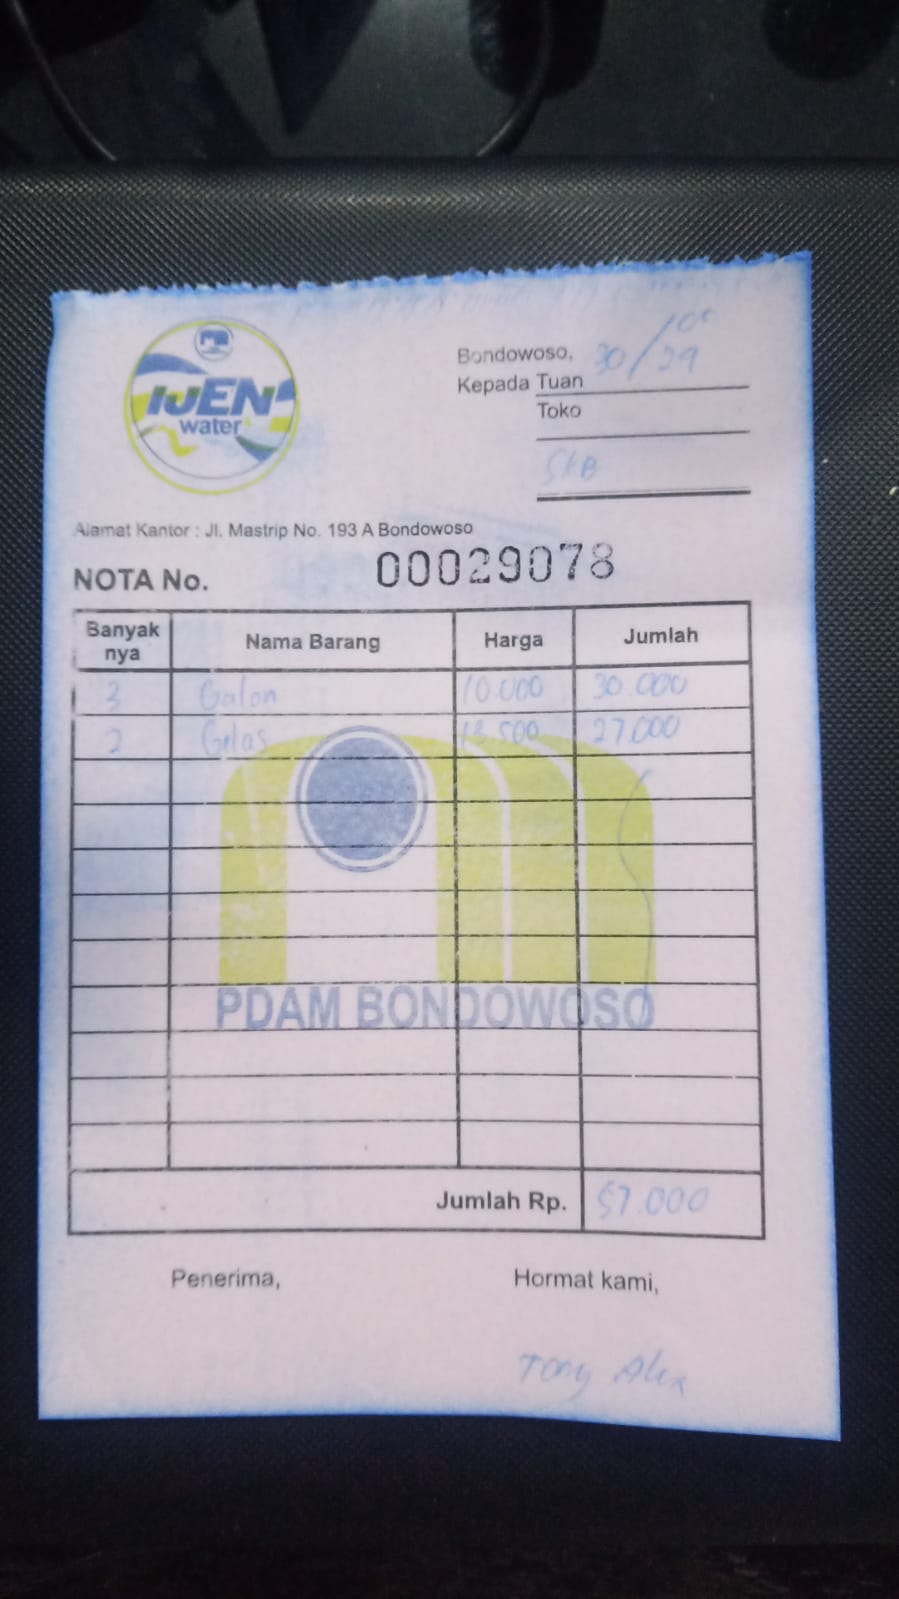 IJEN
water
Bondowoso, 30/
Kepada Tuan
Toko
Alamat Kantor : Jl. Mastrip No. 193 A Bondowoso
NOTA No. 00029078
Banyak nya Nama Barang Harga Jumlah
3 Galon 10.000 30.000
2 Gelas 13.500 27.000
PDAM BONDOWOSO
Jumlah Rp. 57.000
Penerima, Hormat kami,
Tony Alex